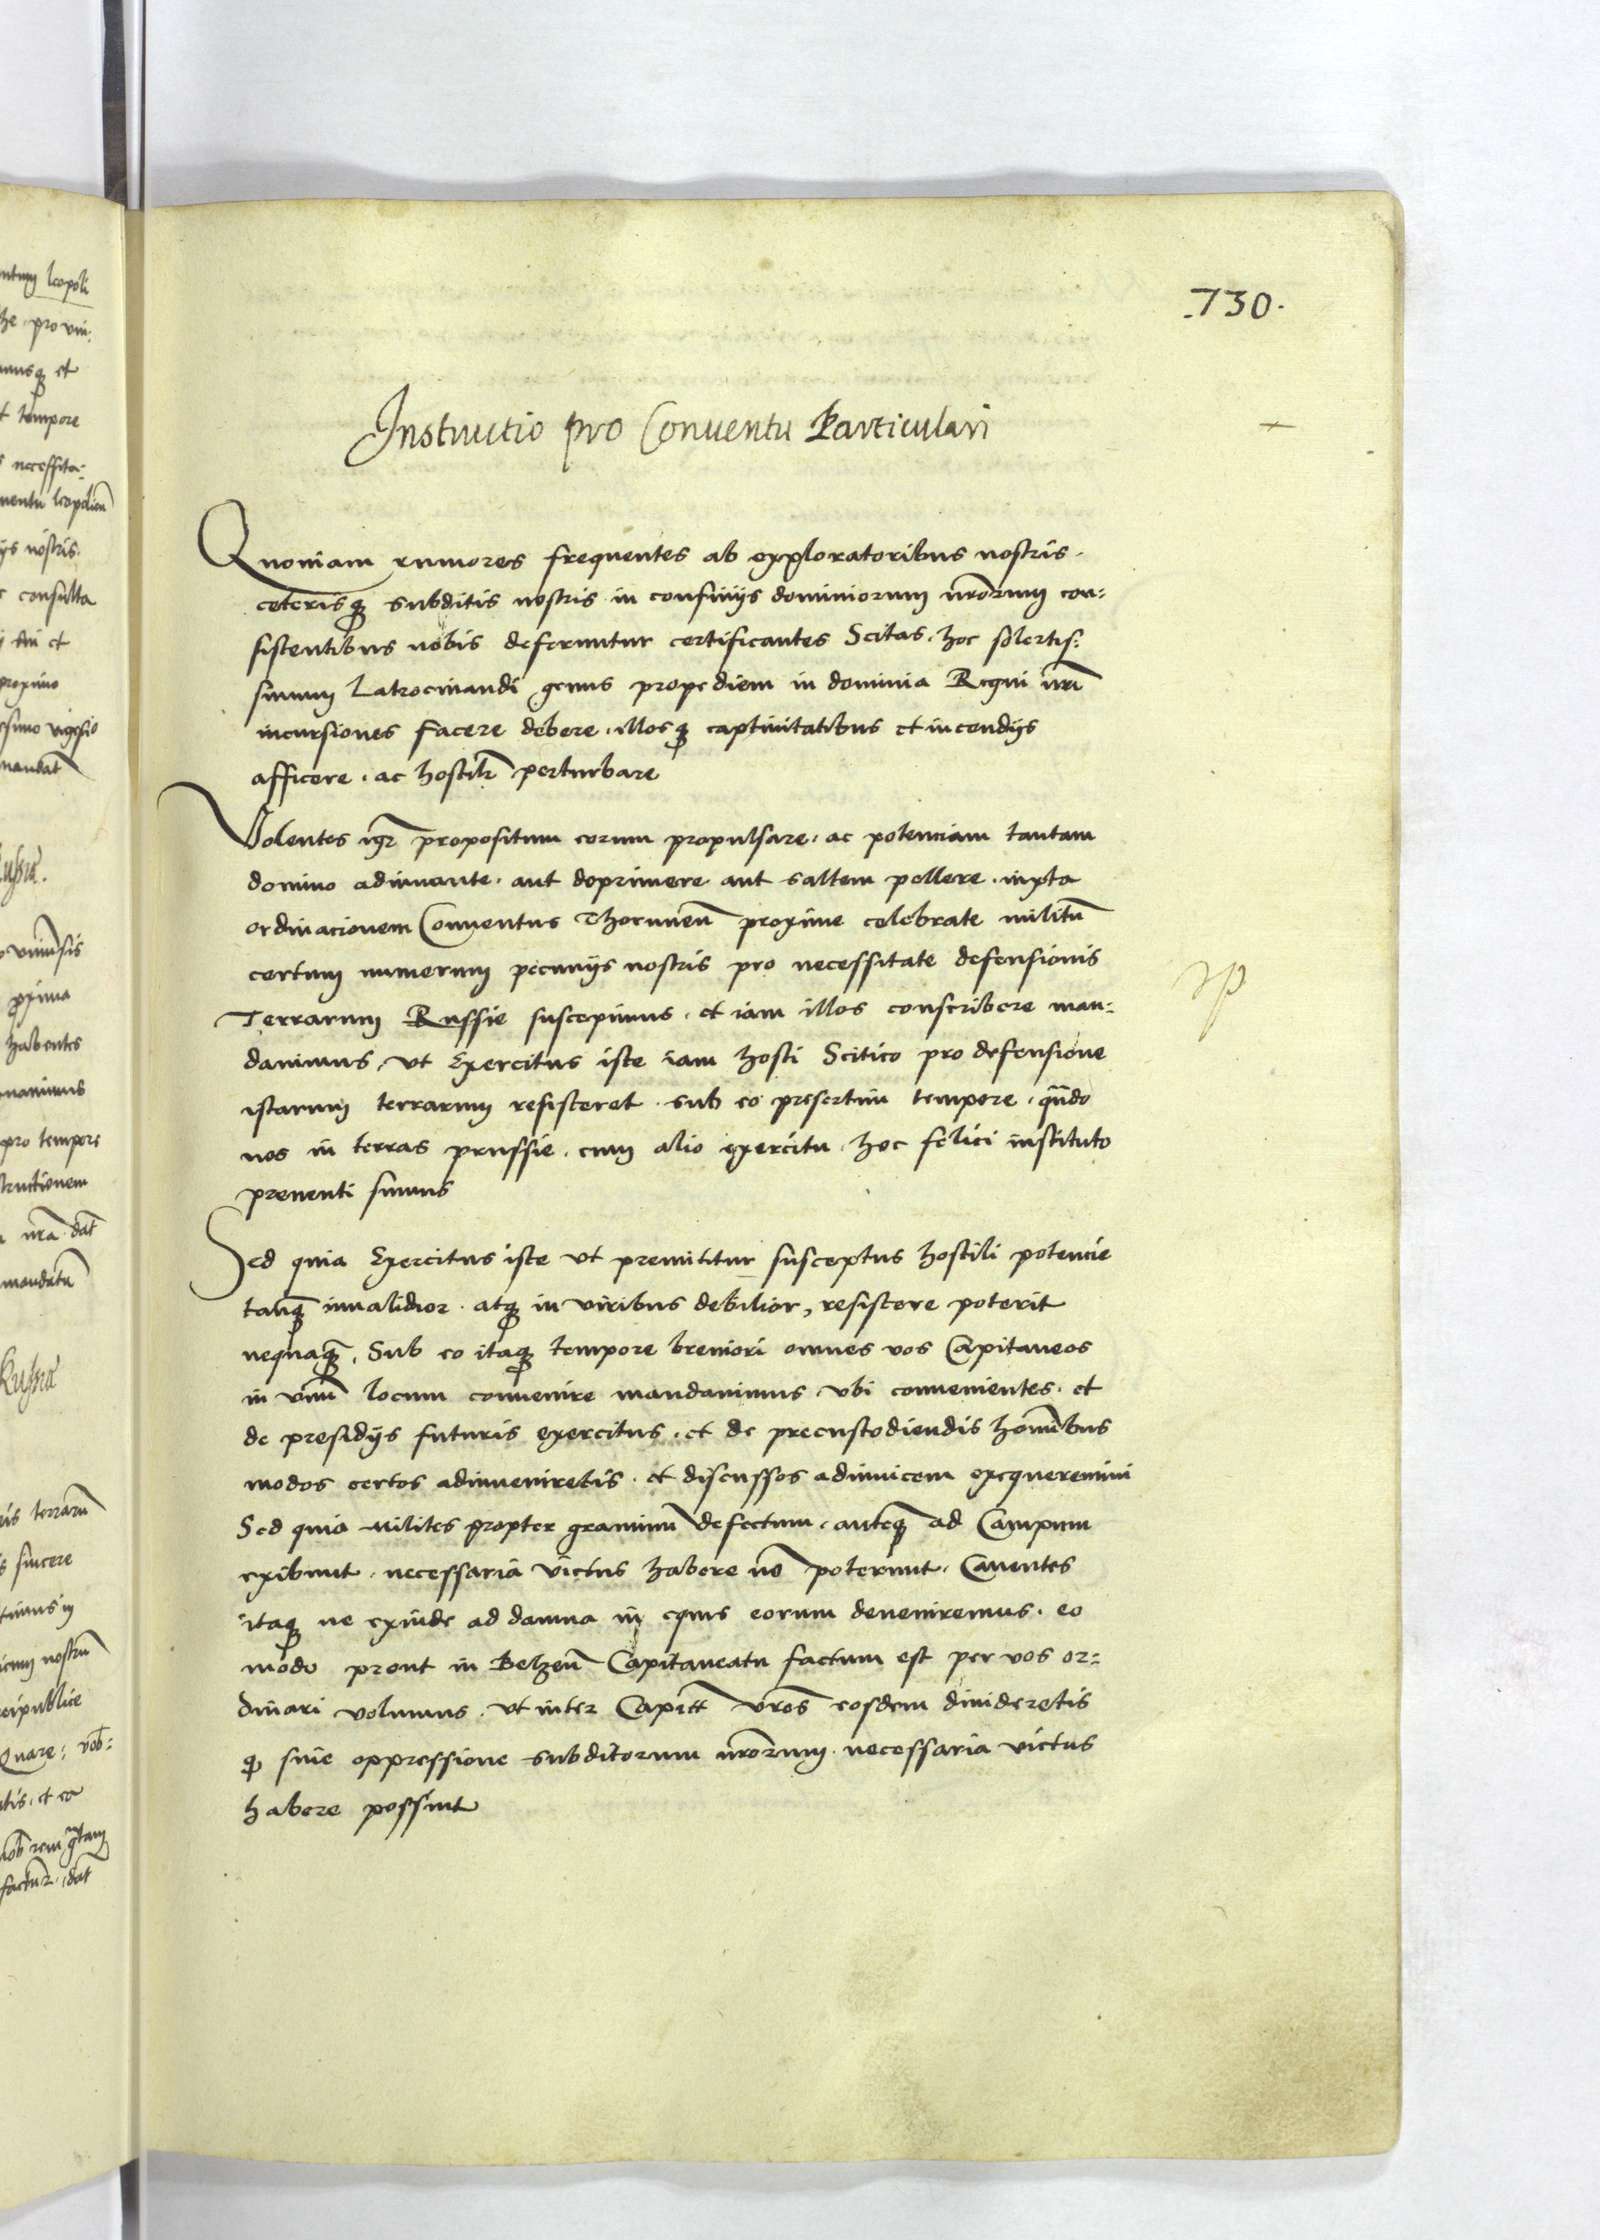 .730.
Instructio pro Conventu Particulari
Quoniam rumores frequentes ab exploratoribus nostris.
ceterisq3 subditis nostris in confinijs dominiorum nrorum con:
sistentibus nobis deferuntur certificantes Scitas. hoc solertis:
simum Latrocinandi genus propediem in dominia Regni nri
incursiones facere debere. illosq3 captivitatibus et incendijs
afficere. ac hostilr perturbare
Volentes igr propositum eorum propulsare. ac potenciam tantam
domino adiuuante. aut deprimere aut saltem pellere. iuxta
ordinacionem Conuentus Thorunen proxime celebrate militu
certum numerum pecunijs nostris pro necessitate defensionis
Terrarum Russie suscepimus. et iam illos conscribere man:
dauimus, vt Exercitus iste iam hosti Scitico pro defensione
istarum terrarum resisteret. sub eo presertim tempore. qndo
nos in terras prussie. cum alio exercitu. hoc felici instituto
prenenti sumus
Sed quia Exercitus iste vt premititur susceptus hostili potencie
tanq3 inualidior. atq3 in viribus debilior, resistere poterit
nequaq3. Sub eo itaq3 tempore breuiori omnes vos Capitaneos
in vnu locum conuenire mandauimus vbi conuenientes. et
de presidijs futuris exercitus. et de precustodiendis hominibus
modos certos adinueniretis. et discussos adinuicem exequeremini
Sed quia milites propter graminu defectum. anteq3 ad Campum
exibunt. necessaria victus habere no poterunt. Cauentes
itaq3 ne exinde ad damna in equis eorum deueniremus. eo
modo prout in Belzen Capitaneatu factum est per vos or:
dinari volumus. vt inter Capitt vros eosdem diuideretis
q sine oppressione subditorum nrorum necessaria victus
habere possint